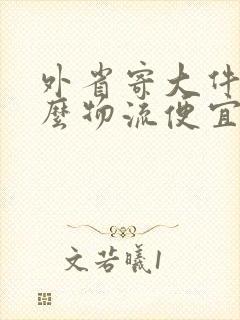 外省寄大件
麼物流便宜
文若曦1